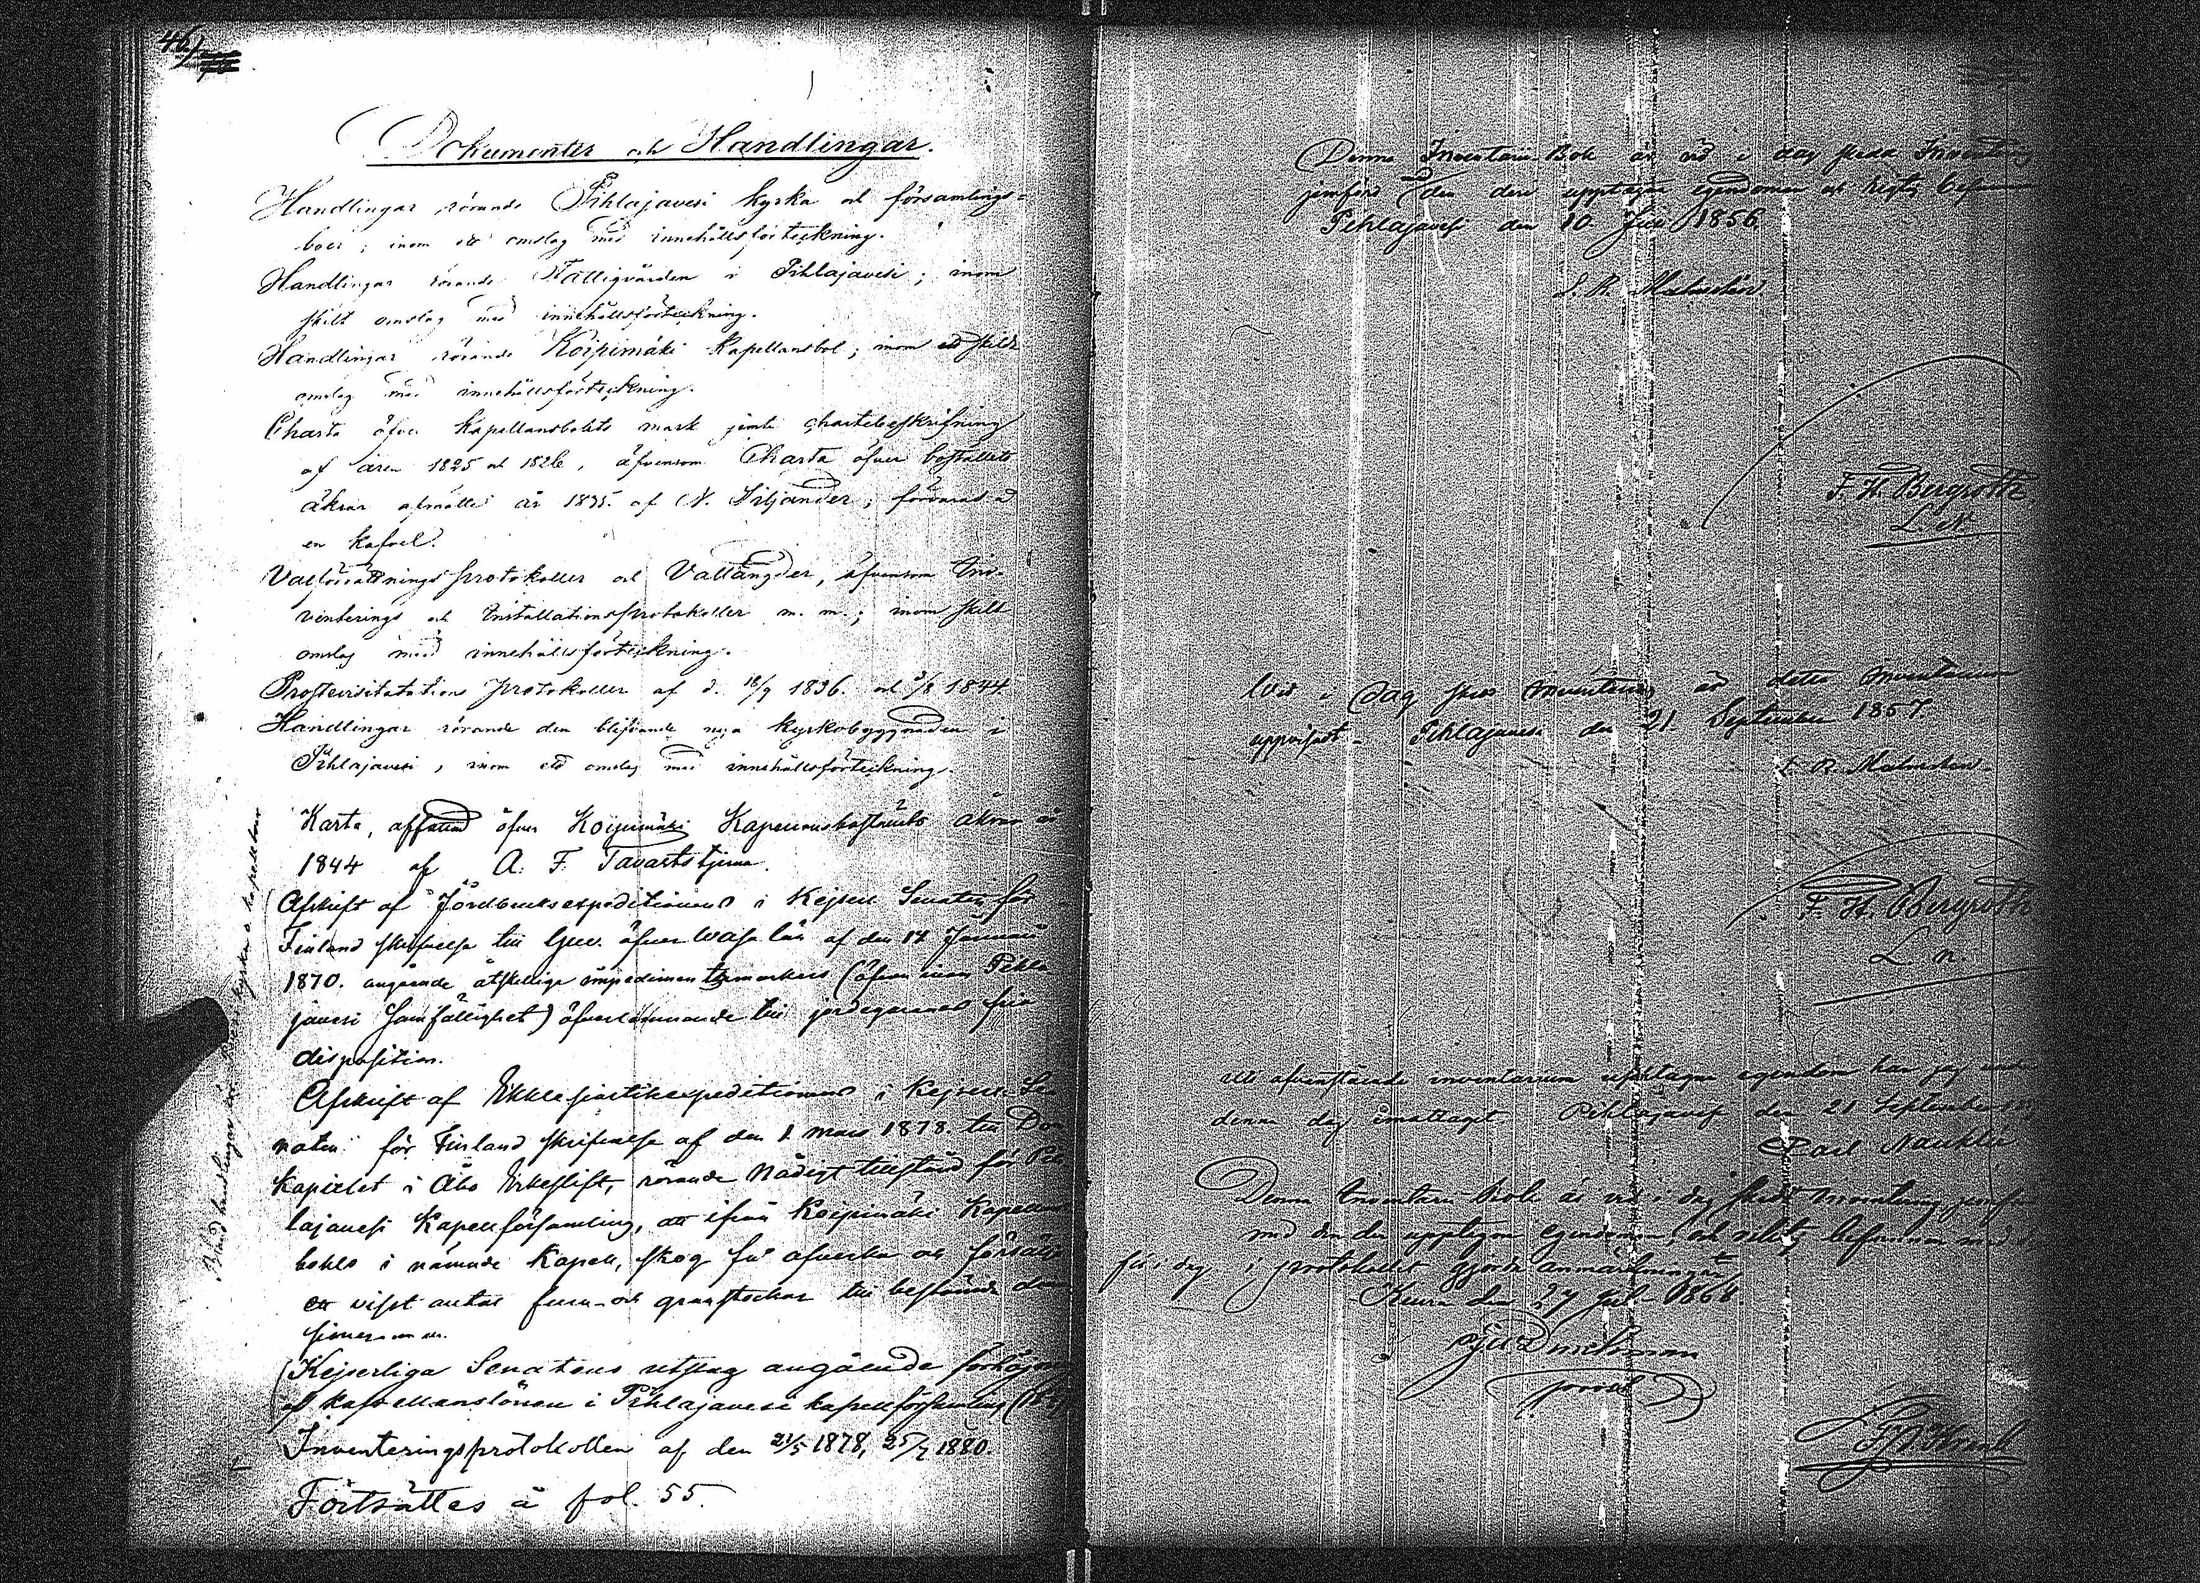 46/
Dokumenter och Handlingar.
Handlingar rörande Pihlajavesi kyrka och församlings-
boer; inom ett omslag med innehållsförteckning.
Handlingar rörande Fattigvården i Pihlajavesi; inom
skilt omslag med innehållsförteckning.
Handlingar rörande Koipimäki Kapellansbol; inom ett skildt
omslag med innehållsförteckning.
Charta öfver Kapellansbolets mark jemte chartebeskrifning
af åren 1825 och 1826, äfvensom Charta öfver bostället
åkrar afmätte år 1835 af N. Siljander; förvarad å
en kafvel.
Valförrättnings protokoller och Vallängder, äfvensom In-
venterings och Installationsprotokoller m. m.; inom skilt
omslag med innehållsförteckning.
Prostevisitations protokoller af d. 18/9 1836. och 3/8 1844
Handlingar rörande den blifvande nya kyrkobyggnaden i
Pihlajavesi, inom ett omslag med innehållsförteckning.
Karta, affattad öfver Koipimäki Kapellansboställets åkrar år
1844 af A. F. Tavaststjerna.
Afskrift af Jordbruksexpeditionens i Kejserl. Senaten för
Finland skrifvelse till Guv. öfver Wasa län af den 14 Januari
1870. angående åtskilliga impedimentsmarkers (äfven inom Pihla
javesi Samfällighet) öfverlämnande till jordegarenas fria
disposition.
Afskrift af Ekklesiastikexpeditionens i Kejserl. Se
naten för Finland skrifvelse af den 1 mars 1878. till Dom
Kapitlet i Åbo Erkestift, rörande Nådigt tillstånd för Pih
lajavesi Kapellförsamling, att ifrån Koipimäki Kapellans
bohls i nämnde Kapell, skog få afverka och försälja
ett visst antal furu- och granstockar till bestämda dimen
sioner m. m.
Kejserliga Senatens utslag angående förhöjning
af kapellanslönen i Pihlajavesi kapellförsamling
Inventeringsprotokollen af den 21/5 1878, 25/7 1880.
Fortsättes å fol. 55.
Bland handlingar rör. kyrkan o. kapellanen
Denna Inventarii Bok är vid i dag skedd Inventering
jemförd med den deri upptagne egendomen och riktig befunnen
Pihlajavesi den 10 Juni 1856.
L. R. Malmstén.
F. H. Bergroth
L. n.
Wid i dag skedd Inventering är detta Inventarium
uppvisadt. Pihlajavesi den 21 September 1857.
L. R. Malmstén
F. H. Bergroth
L. n.
uti ofvanstående inventarium upptagne egendom har jag under
denna dag emottagit. Pihlajavesi den 21 September
Carl Nauklér
Denna Inventarii Bok är vid i dag skedd Inventering jemförd
med den der upptagne egendomen, och riktig befunnen med
för i dag i protokollet gjorda anmärkningar
Keuru den 27 Juli 1864.
prost